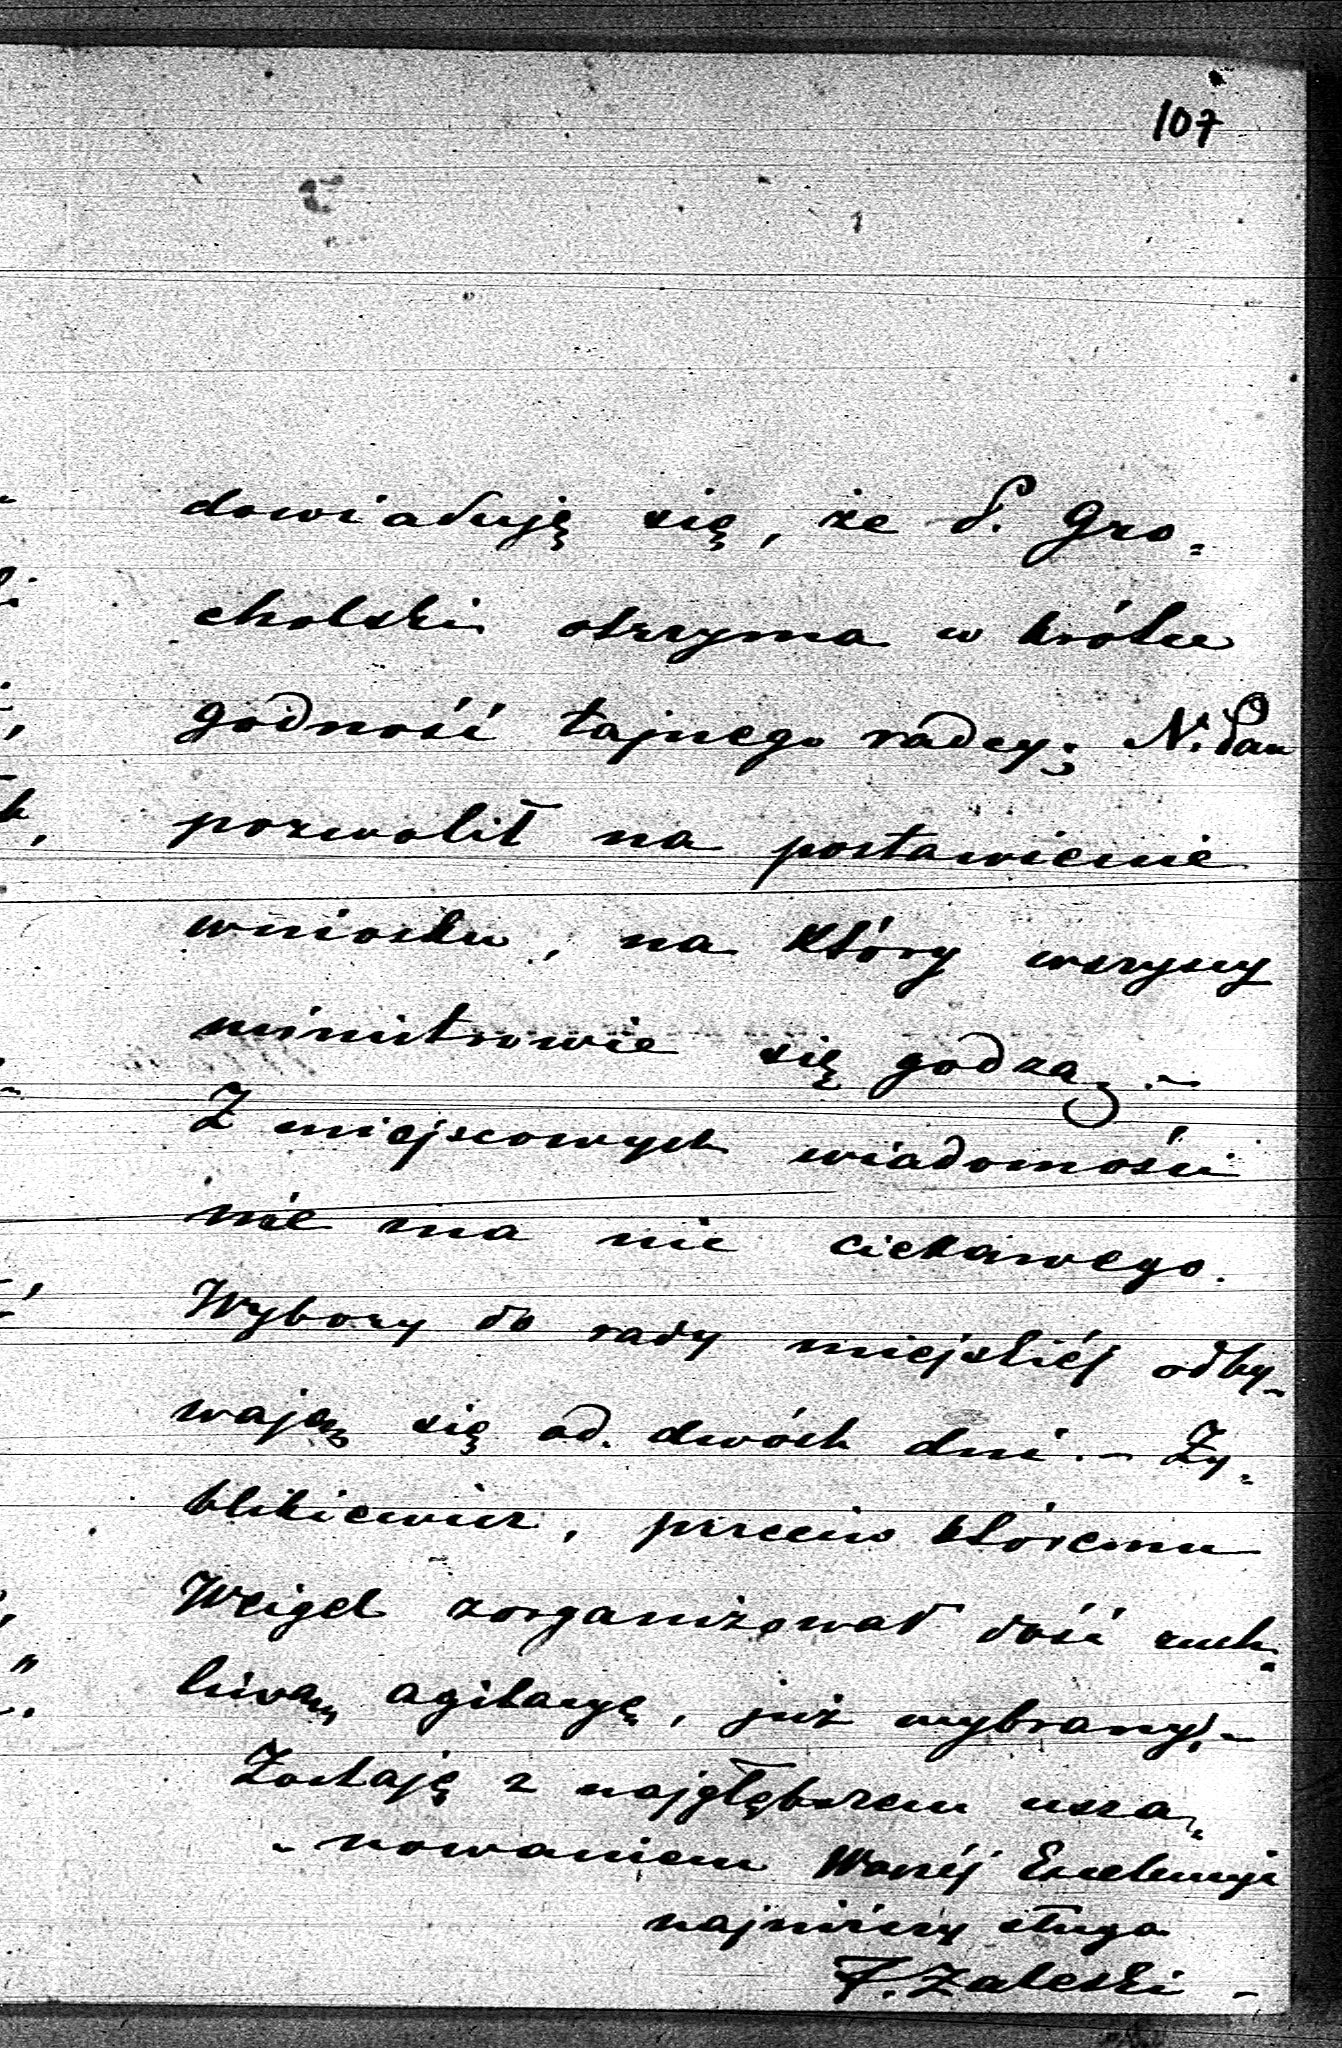 107
dowiaduję się, że P. Gro-
cholski otrzyma w krótce
godność tajnego radcy; N. Pan
pozwolił na postawienie
wniosku, na który wszyscy
ministrowie się godzą. –
Z miejscowych wiadomości
nie ma nic ciekawego.
Wybory do rady miejskiéj odby-
wają się od dwóch dni. – Zy-
blikiewicz, przeciw któremu
Weigel zorganizował dość ruch-
liwą agitacyę, już wybrany. –
Zostaję z najgłębszem usza-
-nowaniem Waszéj Excelencyi
najniższy sługa
F. Zaleski –